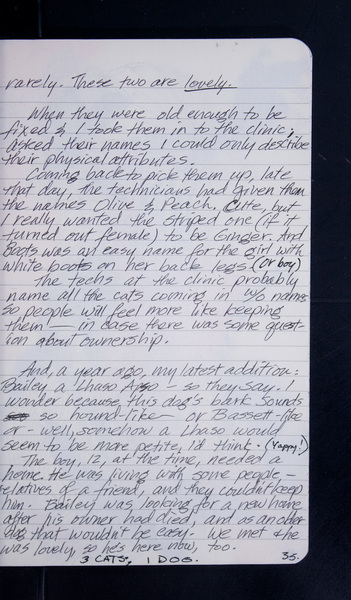 rarely. These two are lovely.
When they were old enough to be
fixed & I took them in to the clinic,
asked their names I could only describe
their physical attributes.
Coming back to pick them up, late
that day, the technicians had given them
the names Olive & Peach. Cute, but
I really wanted the striped one (if it
turned out female) to be Ginger. And
Boots was an easy name for the girl with
white boots on her back legs. (or boy)
The techs at the clinic probably
name all the cats coming in w/o names
so people will feel more like keeping
them — in case there was some quest-
ion about ownership.
And, a year ago, my latest addition:
Bailey a Lhaso Apso - so they say. I
wonder because this dog's bark sounds
so hound-like - or Bassett-like
or - well, somehow a Lhaso would
seem to be more petite, I'd think. (Yappy!)
The boy, 12, at the time, needed a
home. He was living with some people -
relatives of a friend, and they couldn't keep
him. Bailey was looking for a new home
after his owner had died, and as an older
dog that wouldn't be easy. We met & he
was lovely, so he's here now, too.
3 CATS, 1 DOG.
35.